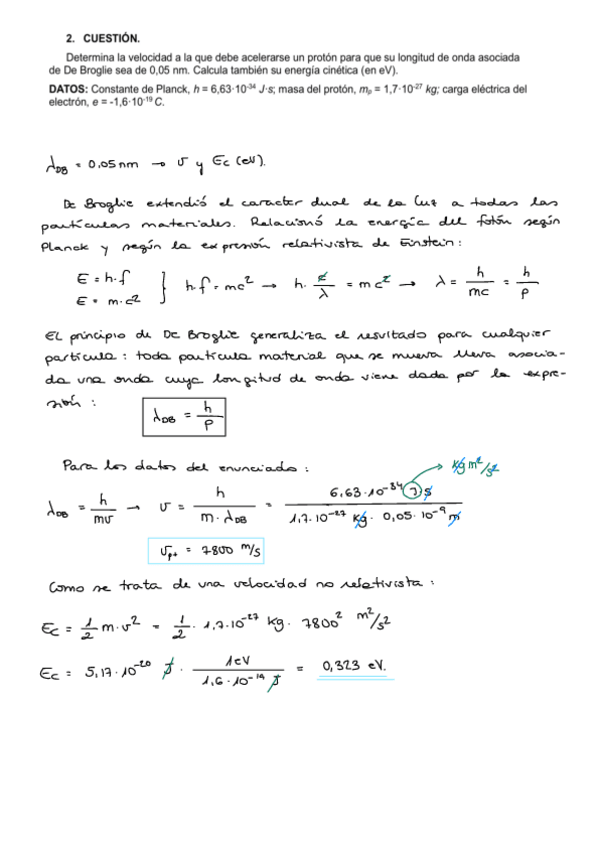 2. CUESTIÓN.
Determina la velocidad a la que debe acelerarse un protón para que su longitud de onda asociada
de De Broglie sea de 0,05 nm. Calcula también su energía cinética (en eV).
DATOS: Constante de Planck, h = 6,63·10⁻³⁴ J·s; masa del protón, mₚ = 1,7·10⁻²⁷ kg; carga eléctrica del
electrón, e = -1,6·10⁻¹⁹ C.
λDB = 0,05 nm → v y Ec (eV).
De Broglie extendió el caracter dual de la luz a todas las
partículas materiales. Relacionó la energía del fotón según
Planck y según la expresión relativista de Einstein:
E = h·f
E = m·c² } h·f = mc² → h· c/λ = mc² → λ = h/mc = h/p
EL principio de De Broglie generaliza el resultado para cualquier
partícula: toda partícula material que se mueva lleva asocia-
da una onda cuya longitud de onda viene dada por la expre-
sión: λDB = h/p
Para los datos del enunciado: kg m²/s²
λDB = h/mv → v = h/m·λDB = 6,63·10⁻³⁴ J s/1,7·10⁻²⁷ kg · 0,05·10⁻⁹ m
vp+ = 7800 m/s
Como se trata de una velocidad no relativista:
Ec = 1/2 m·v² = 1/2 · 1,7·10⁻²⁷ kg · 7800² m²/s²
Ec = 5,17·10⁻²⁰ J · 1eV/1,6·10⁻¹⁹ J = 0,323 eV.